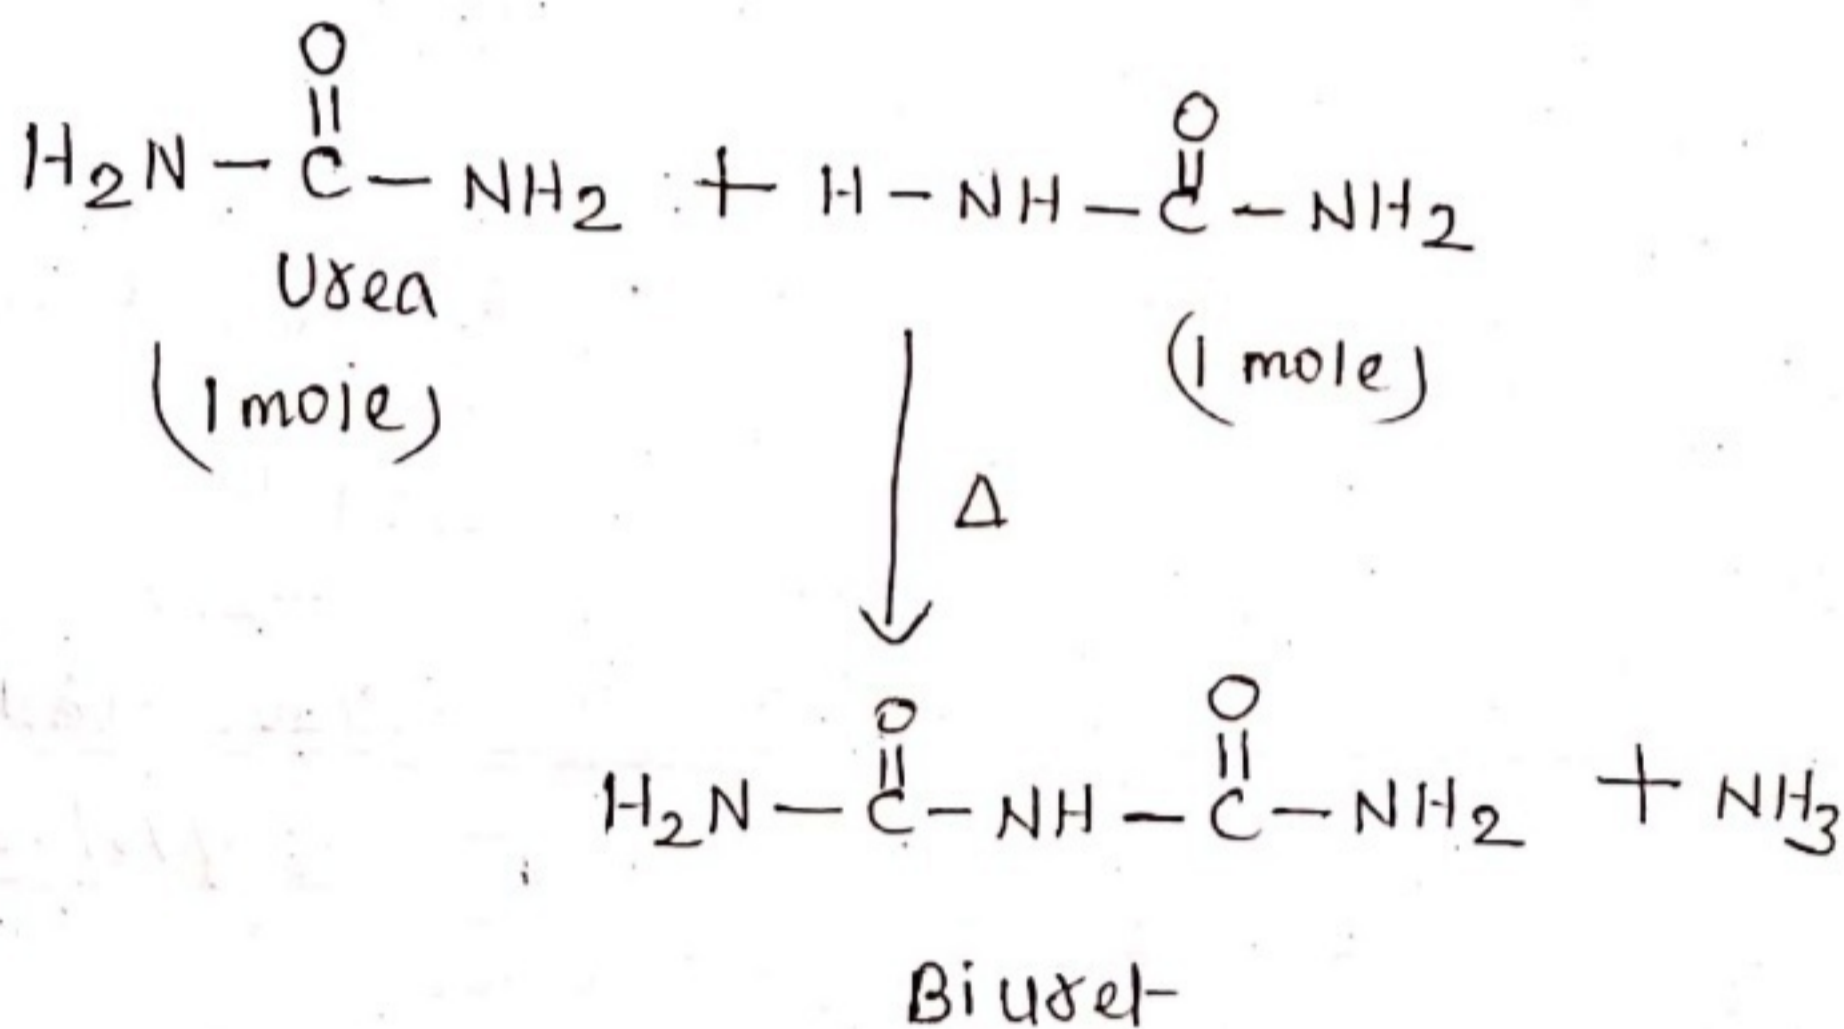 O O
|| ||
H₂N – C – NH₂ + H – NH – C – NH₂
Urea
(1 mole) (1 mole)
Δ
O O
|| ||
H₂N – C – NH – C – NH₂ + NH₃
Biuret